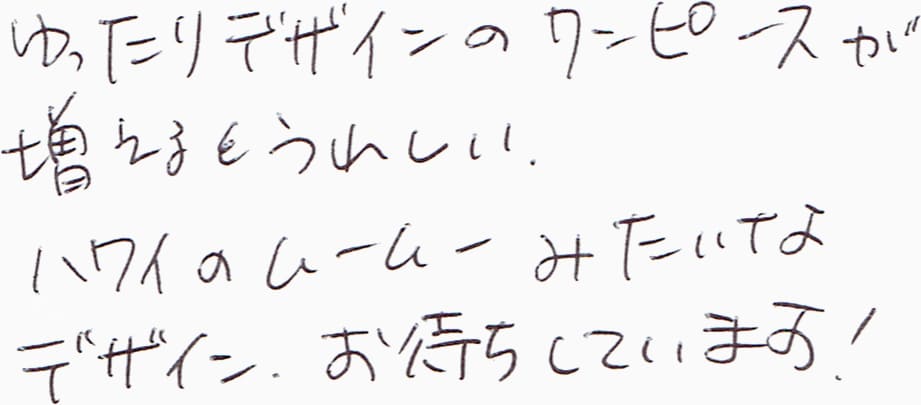 ゆったりデザインのワーピースが
増えるとうれしい.
ハワイのムームーみたいな
デザイン.お待ちしています!